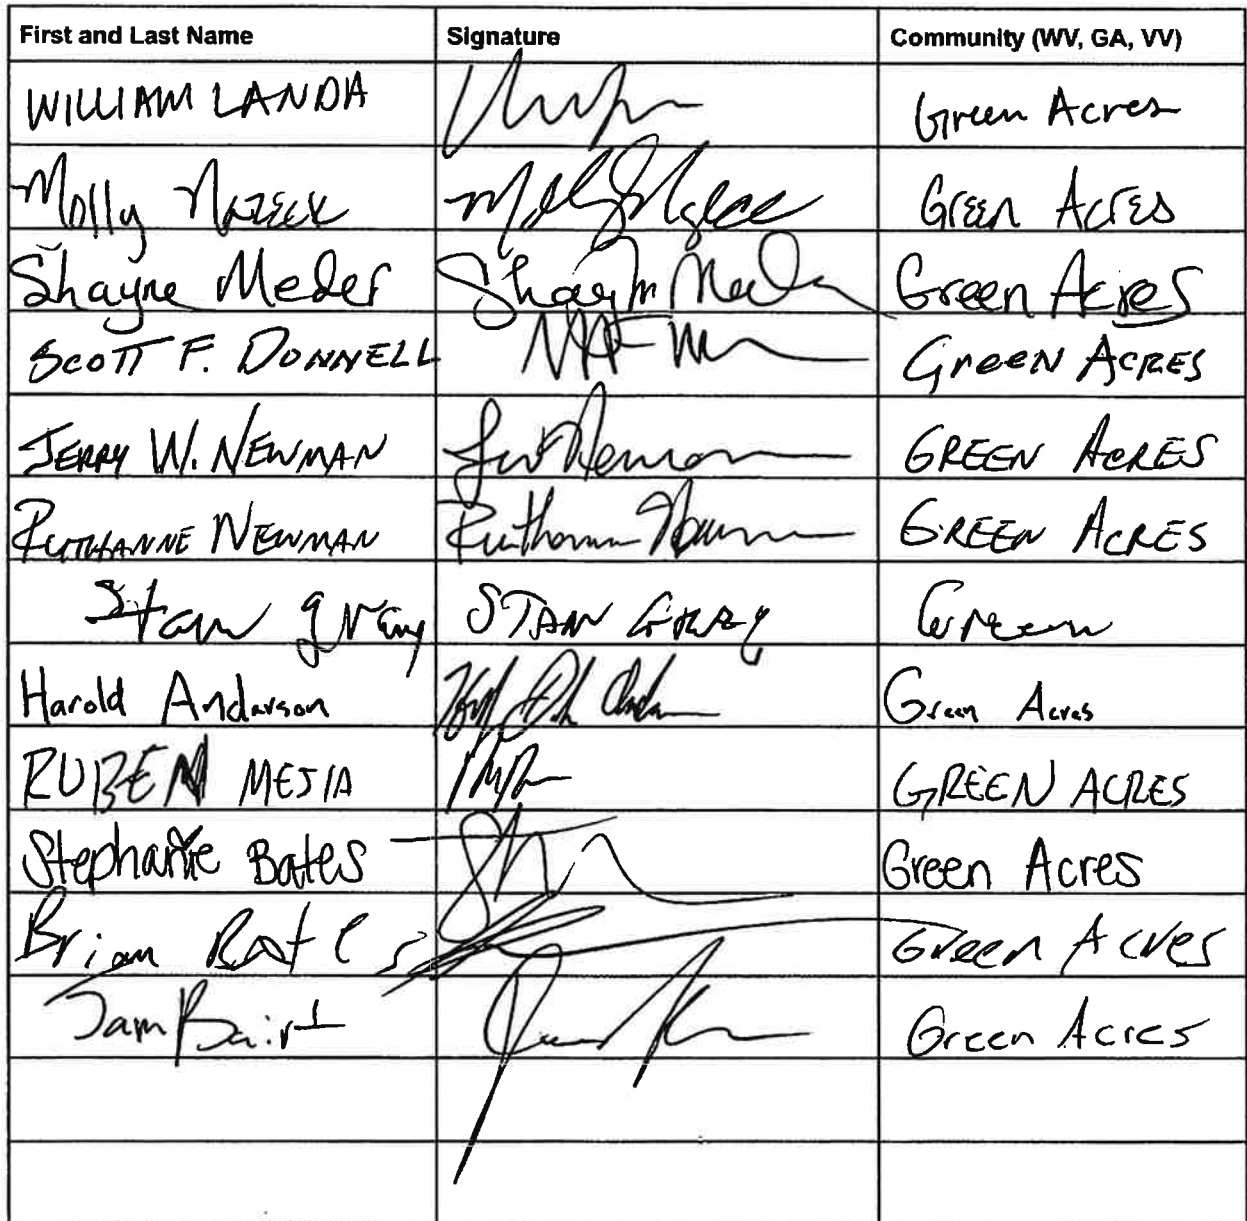 First and Last Name Signature Community (WV, GA, VV)
WILLIAM LANDA Green Acres
Molly Green Acres
Shayne Meder Shayne Meder Green Acres
SCOTT F. DONNELL GREEN ACRES
JERRY W. NEWMAN Newman GREEN ACRES
RUTHANNE NEWMAN Ruthanne Newman GREEN ACRES
Stan Gray STAN GRAY Green
Harold Anderson Green Acres
RUBEN MEJIA GREEN ACRES
Stephanie Bates Green Acres
Brian Bates Green Acres
Green Acres